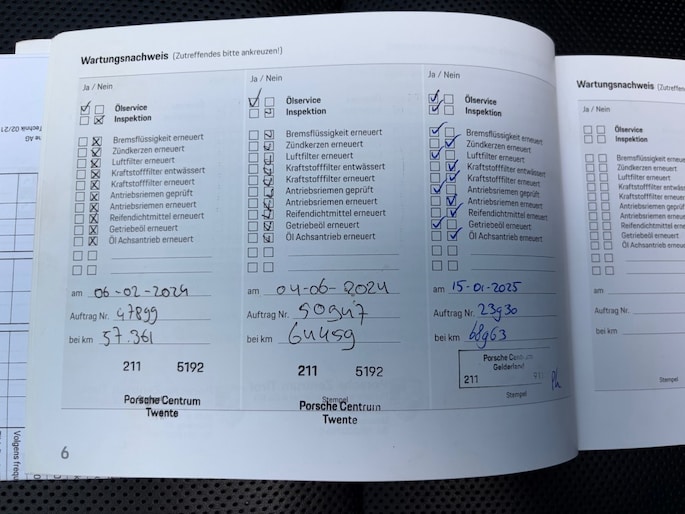 Wartungsnachweis (Zutreffendes bitte ankreuzen!)
Ja / Nein
Ölservice
Inspektion
Bremsflüssigkeit erneuert
Zündkerzen erneuert
Luftfilter erneuert
Kraftstofffilter entwässert
Kraftstofffilter erneuert
Antriebsriemen geprüft
Antriebsriemen erneuert
Reifendichtmittel erneuert
Getriebeöl erneuert
Öl Achsantrieb erneuert
am 06-02-2024
Auftrag Nr. 47899
bei km 57.361
211 5192
Stempel
Porsche Centrum
Twente
Ja / Nein
Ölservice
Inspektion
Bremsflüssigkeit erneuert
Zündkerzen erneuert
Luftfilter erneuert
Kraftstofffilter entwässert
Kraftstofffilter erneuert
Antriebsriemen geprüft
Antriebsriemen erneuert
Reifendichtmittel erneuert
Getriebeöl erneuert
Öl Achsantrieb erneuert
am 04-06-2024
Auftrag Nr. 50947
bei km 64459
211 5192
Stempel
Porsche Centrum
Twente
Ja / Nein
Ölservice
Inspektion
Bremsflüssigkeit erneuert
Zündkerzen erneuert
Luftfilter erneuert
Kraftstofffilter entwässert
Kraftstofffilter erneuert
Antriebsriemen geprüft
Antriebsriemen erneuert
Reifendichtmittel erneuert
Getriebeöl erneuert
Öl Achsantrieb erneuert
am 15-01-2025
Auftrag Nr. 23930
bei km 68963
Porsche Centrum
Gelderland
211
Stempel
6
Wartungsnachweis (Zutreffende
Ja / Nein
Ölservice
Inspektion
Bremsflüssigkeit erneuert
Zündkerzen erneuert
Luftfilter erneuert
Kraftstofffilter entwässert
Kraftstofffilter erneuert
Antriebsriemen geprüft
Antriebsriemen erneuert
Reifendichtmittel erneuert
Getriebeöl erneuert
Öl Achsantrieb erneuert
am
Auftrag Nr.
bei km
Stempel
AG
Technik 02/21
Volgens frequ